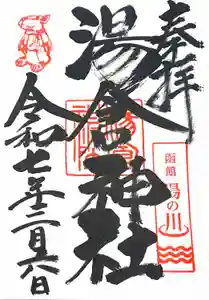 奉拝
湯倉神社
函館
湯の川
令和七年二月六日